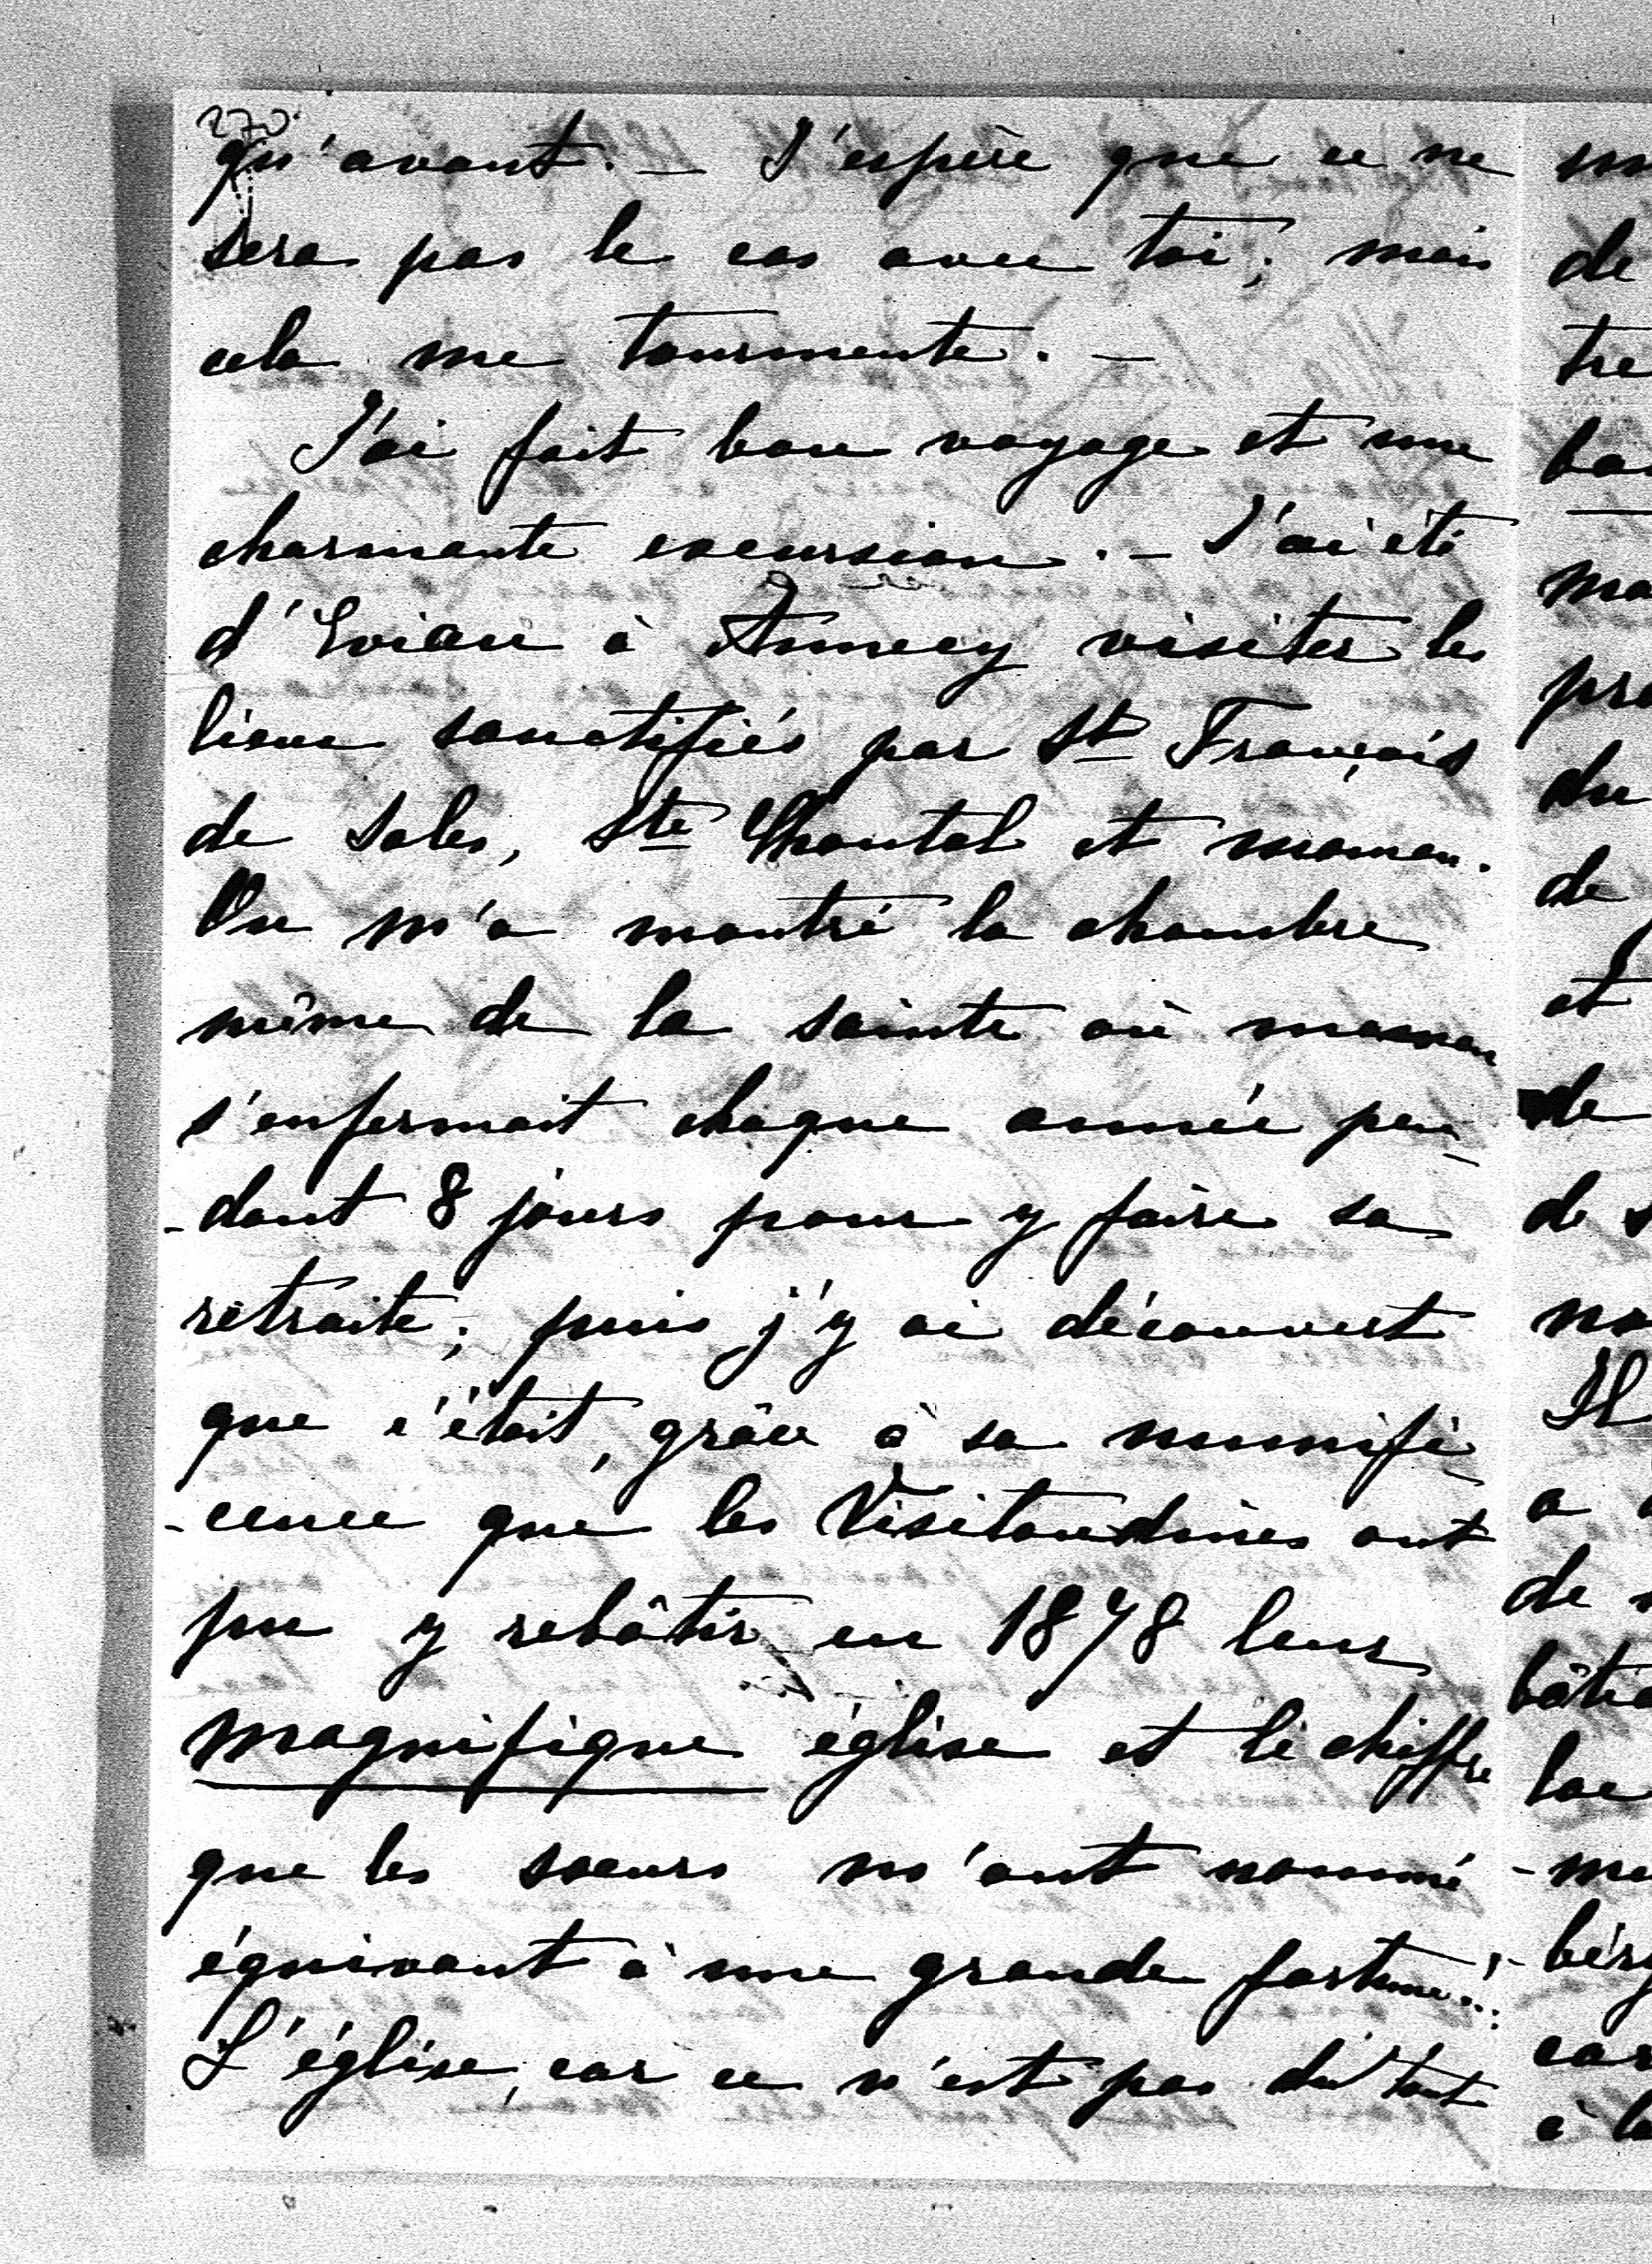 270
qu'avant. — J'espère que ce ne
sera pas le cas avec toi; mais
cela me tourmente. —
J'ai fait bon voyage et une
charmante excursion. — J'ai été
d'Evian à Annecy visiter les
lieux sanctifiés par St François
de Sales, Ste Chantal et maman.
On m'a montré la chambre
même de la sainte où maman
s'enfermait chaque année pen-
-dant 8 jours pour y faire sa
retraite; puis j'y ai découvert
que c'était, grâce à sa munifi-
-cence que les Visitandines ont
pu y rebâtir en 1878 leur
magnifique église et le chiffre
que les soeurs m'ont nommé
équivaut à une grande fortune!..
L'église, car ce n'est pas du tout
de
tre
de
et
de
de s
Il
a
de
à la